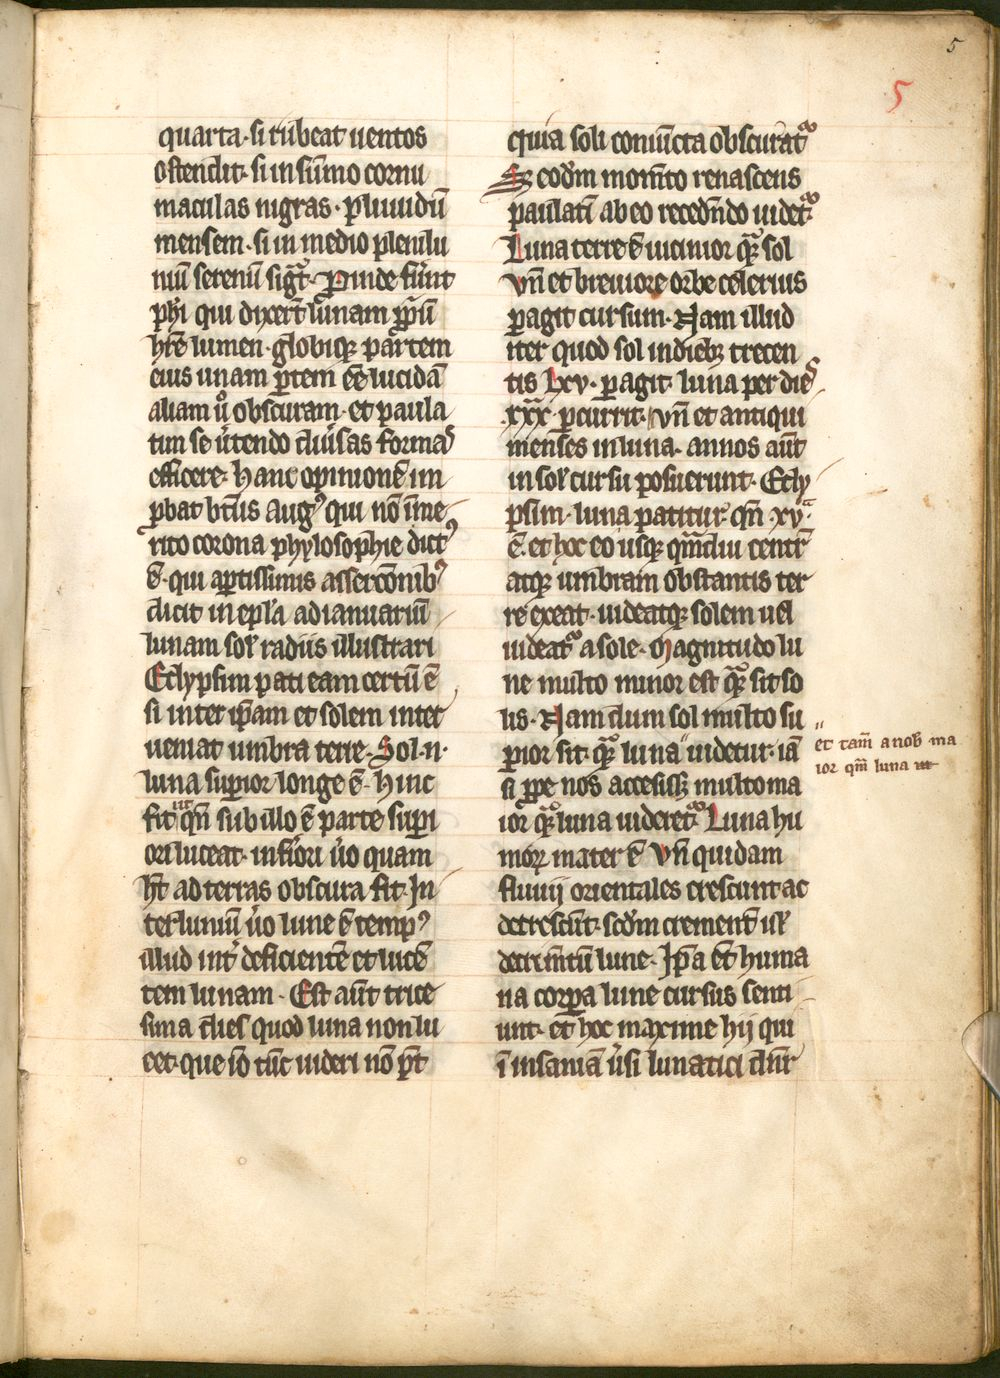 5
5
quarta · si rubeat uentos
ostendit · si in sūmo cornu
maculas nigras · pluuidū
mensem · si in medio plenilu
niū serenū sigt̄ · Proinde fūnt
ph̄i qui dixert̄ lunam pp̄iū
hr̄e lumen · globiqꝫ partem
eius unam ptem ēē lucidā
aliam ū obscuram · et paula
tim se ūtendo diūsas formas
efficere · Hanc opinionē im
ꝓbat btūs Augꝰ qui nō īme
rito corona phylosophie dictꝰ
ē · qui aptissimis assercōnibꝰ
dicit in epl̄a ad ianuariū
lunam sol̄ radiis illustrari
Eclypsim pati eam certū ē
si inter ip̄am et solem inter
ueniat umbra terre · Sol · n ·
luna supior longe ē · Hinc
fit ut qn̄ sub illo ē parte supi
ori luceat · infīori ūo quam
ht̄ ad terras obscura fit · In
terluniū ūo lune ē tempꝰ
illud int̄ deficientē et lucē
tem lunam · Est aūt trice
sima dies quod luna non lu
cet · que iō tūc uideri nō pt̄
quia soli coniūcta obscurat᷑
Sꝫ eodm̄ momn̄to renascens
paulatī ab eo recedn̄do uidet᷑
Luna terre ē uicinior qᷓꝫ sol
vn̄ et breuiore orbe celerius
ꝑagit cursum · Nam illud
iter quod sol in diebꝫ trecen
tis Lxv · ꝑagit · luna per dies
xxx ꝑcurrit · vn̄ et antiqui
menses in luna · annos aūt
in sol̄ cursu posuerunt · Ecly
psim · luna patitur · qn̄ · xvᵃ ·
ē · et hoc eo usqꝫ qm̄diu centr̄
atqꝫ umbram obstantis ter
re exeat · uideatqꝫ solem uel
uideat᷑ a sole · Magnitudo lu
ne multo minor est qᷓꝫ sit so
lis · Nam dum sol multo su
perior sit · qᷓꝫ luna " uidetur · iā
" et tam̄ a nob̄ ma
ior qm̄ luna
si ꝓpe nos accesisꝫ multo ma
ior qᷓꝫ luna uideret᷑ Luna hu
moꝝ mater ē vn̄ quidam
fluuij orientales crescunt ac
decrescūt · scdm̄ crementū ut
decrimn̄tū lune · Ip̄a et̄ huma
na corpa lune cursus senti
unt · et̄ hoc maxime hij qui
ī insaniā ūsi lunatici dn̄r